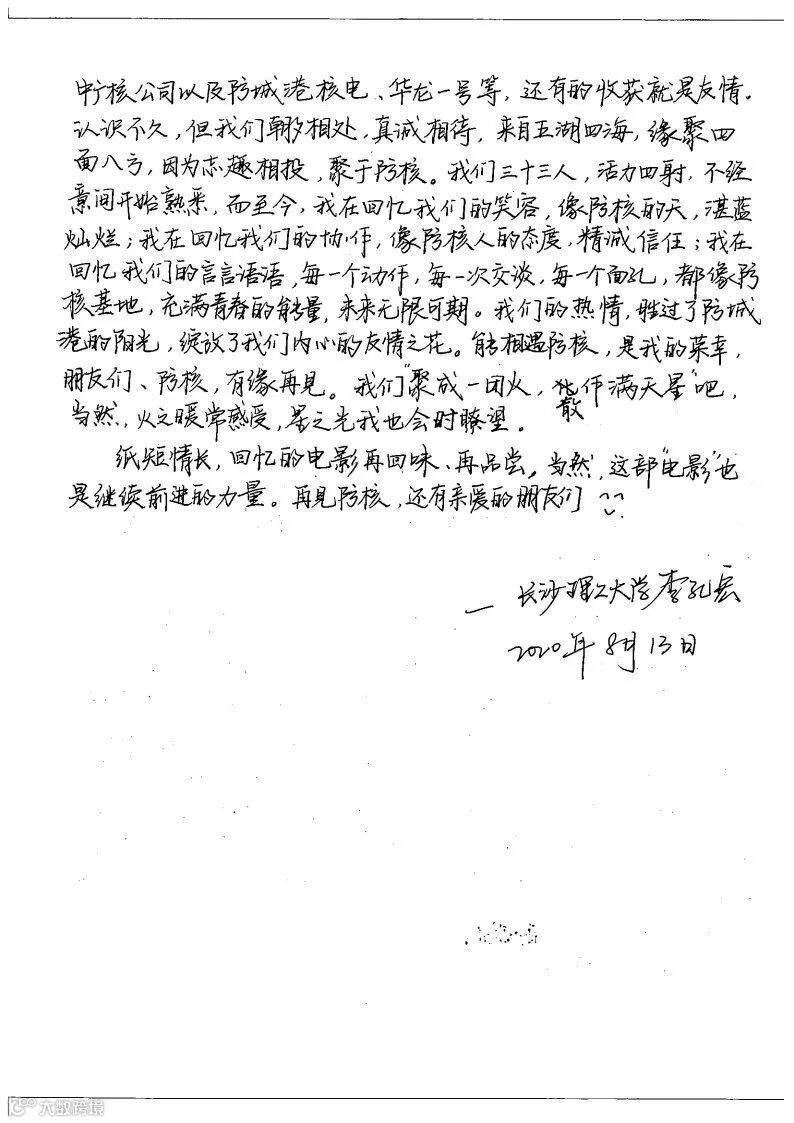 中广核公司以及防城港核电、华龙一号等，还有的收获就是友情。
认识不久，但我们朝夕相处，真诚相待，来自五湖四海，缘聚四
面八方，因为志趣相投，聚于防核。我们三十三人，活力四射，不经
意间开始熟悉，而至今，我在回忆我们的笑容，像防核的天，湛蓝
灿烂；我在回忆我们的协作，像防核人的态度，精诚信任；我在
回忆我们的言言语语，每一个动作，每一次交谈，每一个面孔，都像防
核基地，充满青春的能量，未来无限可期。我们的热情，胜过了防城
港的阳光，绽放了我们内心的友情之花。能相遇防核，是我的荣幸，
朋友们、防核，有缘再见。我们“聚成一团火，散作满天星”吧，
当然，火之暖常感受，星之光我也会时瞭望。
纸短情长，回忆的电影再回味、再品尝。当然，这部“电影”也
是继续前进的力量。再见防核，还有亲爱的朋友们
— 长沙理工大学李孔宏
2020年8月13日
大数跨境